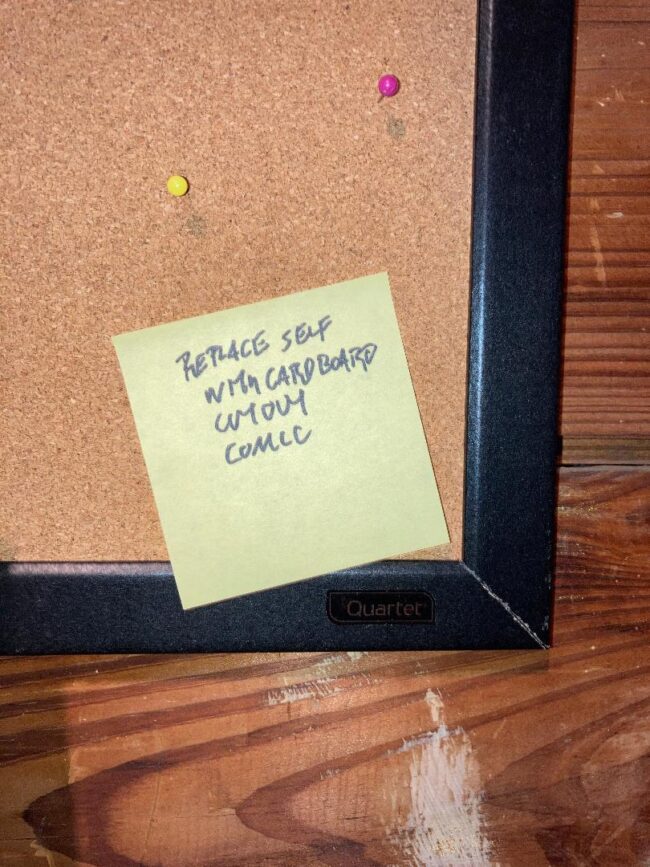 REPLACE SELF
WITH CARDBOARD
CUTOUT
COMIC
Quartet